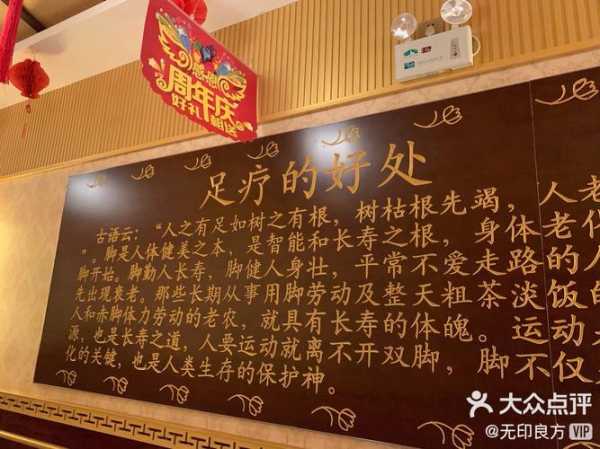 感恩
周年庆
好礼相送
足疗的好处
古语云：“人之有足如树之有根，树枯根先竭，人老
”。脚是人体健美之本，是智能和长寿之根，身体老
脚开始。脚勤人长寿，脚健人身壮，平常不爱走路的人
先出现衰老。那些长期从事用脚劳动及整天粗茶淡饭的
人和赤脚体力劳动的老农，就具有长寿的体魄。运动
源，也是长寿之道，人要运动就离不开双脚，脚不仅
化的关键，也是人类生存的保护神。
大众点评
@无印良方 VIP